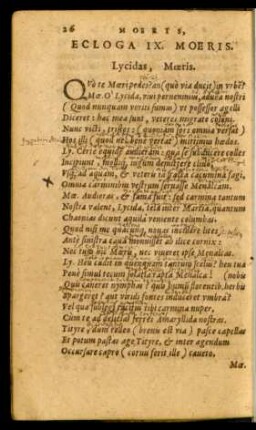 26 MOERIS,
ECLOGA IX. MOERIS.
Lycidas, Moeris.
QVò te Moeri pedes? an (quò via ducit) in vrbē?
Mœ. O' Lycida, viui peruenimus, aduena nostri
(Quod nunquam veriti sumus) vt possessor agelli
Diceret: hæc mea sunt, veteres migrate coloni.
Nunc victi, tristes: (quoniam fors omnia versat)
Hos illi (quod nec bene vertat) mittimus hœdos.
Ly. Certè equidem audieram, qua se subducere colles
Incipiunt, molliq; iugum demittere cliuo,
Vsq; ad aquam, & veteris iã fracta cacumina fagi,
Omnia carminibus vestrum seruasse Menalcam.
Mœ. Audieras, & fama fuit: sed carmina tantum
Nostra valent, Lycida, tela inter Martia, quantum
Chaonias dicunt aquila veniente columbas.
Quod nisi me quacunq; nouas incidere lites,
Ante sinistra caua monuisset ab ilice cornix:
Nec tuus hic Mœris, nec viueret ipse Menalcas.
Ly. Heu cadit in quenquam tantum scelus? heu tua
Penè simul tecum solatia rapta Menalca! (nobis
Quis caneret nymphas? quis humū florentib. herbis
Spargeret? aut viridi fontes induceret vmbra?
Vel quæ sublegi tacitus tibi carmina nuper,
Cùm te ad delicias ferres Amaryllida nostras.
Tityre dum redeo (breuis est via) pasce capellas
Et potum pastas age Tityre, & inter agendum
Occursare capro (cornu ferit ille) caueto.
Mœ.